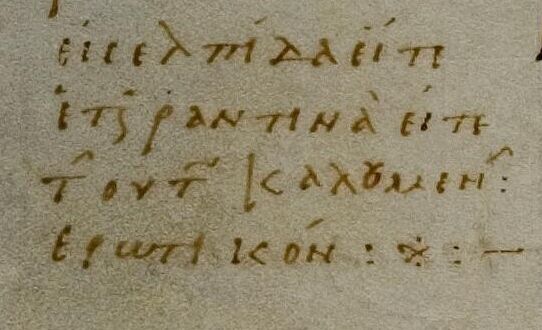 εἰς ἐλπίδα εἴτε
ἑταίραν τινὰ εἴτε
τ̑ οὕτ̑ καλȣμεν̑ :
ἐρωτικόν : ※ : —